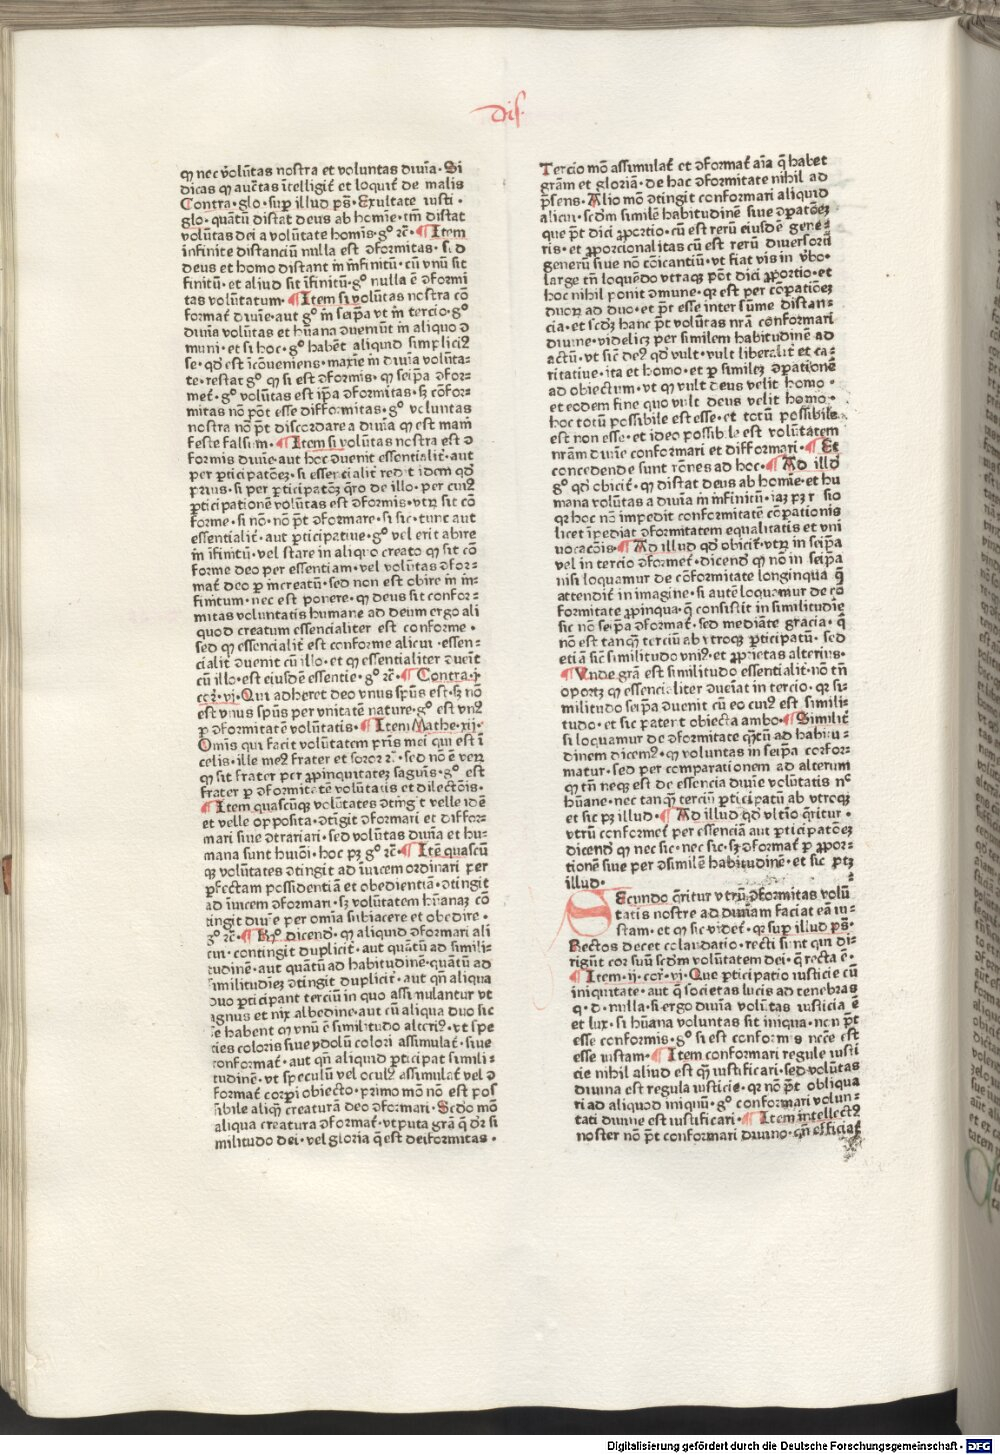 dis.
ꝙ nec volūtas nostra et voluntas diuīa· Si
dicas ꝙ auētas ītelligit᷑ et loquit᷑ de malis
Contra· glo· suꝑ illud pꝭ· Exultate iusti·
glo· quātū distat deus ab homīe· tm̄ distat
volūtas dei a volūtate homīs· gº rc̄· ¶ Item
infinite distanciū nulla est ꝯformitas· s· d
deus et homo distant in īnfinitū· cū vnū sit
finitū· et aliud sit īfinitū· gº nulla ē ꝯformi
tas volūtatum· ¶ Item si volūtas nostra cō
format᷑ diuīe· aut gº in seip̄a vt in tercio· gº
diuīa volūtas et hūana ꝯueniūt in aliquo ꝯ
muni· et si hoc· gº habēt aliquid simpliciꝰ
se· qd̄ est īcōueniens· maxīe in diuīa volūta-
te· restat gº ꝙ si est ꝯformis· ꝙ seip̄a ꝯfor-
met᷑· gº voluntas est ip̄a ꝯformitas· sꝫ cōfor-
mitas nō pōt esse difformitas· gº voluntas
nostra nō pōt discordare a diuīa ꝙ est mani
feste falsum· ¶ Item si volūtas nostra est ꝯ
formis diuīe· aut hoc ꝯuenit essentialit᷑· aut
per ꝑticipatōeꝫ· si essencialit᷑ redit idem qd̄
prius· si per ꝑticipatōꝫ q̄ro de illo· per cuiꝰ
ꝑticipationē voluntas est ꝯformis· vtꝝ sit cō
forme· si nō· nō pōt ꝯformare· si sic· tunc aut
essentialit᷑· aut ꝑticipatiue· gº vel erit abire
in īfinitū· vel stare in aliquo creato ꝙ sit cō
forme deo per essentiam· vel voluntas ꝯfor-
mat᷑ deo ꝑ increatū· sed non est abire in in-
finitum· nec est ponere· ꝙ deus sit confor-
mitas voluntatis humane ad deum ergo ali
quod creatum essencialiter est conforme·
sed ꝙ essencialit᷑ est conforme alicui· essen-
cialit᷑ ꝯuenit cū illo· et ꝙ essentialiter ꝯuēit
cū illo· est eiusdē essentie· gº rc̄· ¶ Contra· j·
corꝫ· vi· Qui adheret deo vnus spūs est· sꝫ nō
est vnus spūs per vnitatē nature· gº est vnꝰ
ꝑ ꝯformitatē volūtatis· ¶ Item Mathe· xij·
Omīs qui facit volūtatem pr̄is mei qui est ī
celis· ille meꝰ frater et soror rc̄· sed nō ē verū
ꝙ sit frater per ꝓpinquitateꝫ saguīs· gº est
frater ꝑ ꝯformitatē volūtatis et dilectōis·
¶ Item quascūqꝫ volūtates ꝯtingit velle idē
et velle opposita· ꝯtigit ꝯformari et diffor-
mari siue ꝯtrariari· sed volūtas diuīa et hu-
mana sunt huiōi· hoc pꝫ gº rc̄· ¶ Itē quascū
qꝫ voluntates ꝯtingit ad inuicem ordinari per
ꝑfectam possidentiā et obedientiā· ꝯtingit
ad inuicem ꝯformari· sꝫ volūtatem hūanaꝫ cō
tingit diuīe per omīa subiacere et obedire·
gº rc̄· ¶ Rº· dicenō· ꝙ aliquid ꝯformari ali
cui· contingit duplicit᷑· aut quātū ad simili-
tudinē· aut quātū ad habitudinē· quātū ad
similitudieꝫ ꝯtingit duplicit᷑· aut qn̄ aliqua
duo ꝑticipant terciū in quo assimulantur vt
agnus et nix albedine· aut cū aliqua duo sic
se habent ꝙ vnū ē similitudo alteriꝰ· vt spe
cies coloris siue ydolū colori assimulat᷑· siue
conformat᷑· aut qn̄ aliquid ꝑticipat simili-
tudinē· vt speculū vel oculꝰ assimulat᷑ vel ꝯ
format᷑ corꝑi obiecto· primo mō nō est pos
sibile aliqm̄ creaturā deo ꝯformari· Scdo mō
aliqua creatura ꝯformat᷑· vt puta grā ꝙ dr̄ si
militudo dei· vel gloria q̄ est deiformitas·
Tercio mō assimulat᷑ et ꝯformat᷑ aīa q̄ habet
grām et gloriā· de hac ꝯformitate nihil ad
pn̄sens· Alio mō ꝯtingit conformari aliquid
alicui· scdm similē habitudinē siue ꝯꝑatōeꝫ
que pōt dici ꝓportio· cū est rerū eiusdē gene-
ris· et ꝓporcionalitas cū est rerū diuersorū
generū siue nō cōicantiū· vt fiat vis in vb̄o·
large tn̄ loquēdo vtraqꝫ pōt dici ꝓportio· et
hoc nihil ponit ꝯmune· qr est per cōꝑatiōeꝫ
duoꝝ ad duo· et pōt esse inter sūme distan-
cia· et scdꝫ hanc pōt volūtas nrā conformari
diuine· videlicꝫ per similem habitudinē ad
actū· vt sic̄ deꝰ qd̄ vult· vult liberalit᷑ et ca-
ritatiue· ita et homo· et ꝑ similēꝫ ꝯꝑationē
ad obiectum· vt ꝙ vult deus velit homo·
et eodem fine quo vult deus velit homo·
hoc totū possibile est esse· et totū possibile
est non esse· et ideo possibile est volūtatem
nrām diuīe conformari et difformari· ¶ Et
concedende sunt rōnes ad hoc· ¶ Ad illd̄
gº qd̄ obicit᷑· ꝙ distat deus ab homīe· et hu
mana volūtas a diuīa in īnfinitū· iaꝫ pꝫ r̄sio
qr hoc nō impedit conformitatē cōꝑationis
licet īpediat ꝯformitatem equalitatis et vni
uocacōis· ¶ Ad illud qd̄ obicit᷑· vtꝝ in seip̄a
vel in tercio ꝯformet᷑· dicenō ꝙ nō in seip̄a
nisi loquamur de cōformitate longinqua q̄
attendit᷑ in imagine· si autē loquamur de cō
formitate ꝓpinqua· q̄ consistit in similitudīe
sic nō seip̄a ꝯformat᷑· sed mediāte gracia· q̄
nō est tanqꝫ terciū ab vtroqꝫ ꝑticipatū· sed
etiā sic̄ similitudo vniꝰ· et ꝓprietas alterius·
¶ Vnde grā est similitudo essentialit᷑· nō tn̄
oportꝫ ꝙ essencialiter ꝯueniat in tercio· qr si-
militudo seip̄a ꝯuenit cū eo cuiꝰ est simili-
tudo· et sic patent obiecta ambo· ¶ Similit᷑
si loquamur de ꝯformitate qn̄tū ad habitu-
dinem dicemꝰ· ꝙ voluntas in seip̄a confor-
matur· sed per comparationem ad alterum
ꝙ tn̄ neqꝫ est de essencia diuīe volūtatis nº
hūane· nec tanqꝫ terciū ꝑticipatū ab vtroqꝫ
et sic pꝫ illud· ¶ Ad illud qd̄ vltīo q̄ritur·
vtrū conformet᷑ per essenciā aut ꝑticipatōeꝫ
dicenō ꝙ nec sic· nec sic· sꝫ ꝯformat᷑ ꝑ ꝓpor-
tionē siue per ꝯsimilē habitudinē· et sic pꝫ
illud·
Secundo q̄ritur vtrū ꝯformitas volū
tatis nostre ad diuinam faciat eā iu-
stam· et ꝙ sic videt᷑· qr suꝑ illud pꝭ·
Rectos decet colaudatio· recti sunt qui di-
rigūt cor suū scdm voluntatem dei· q̄ recta ē·
¶ Item· ij· cor· vj· Que ꝑticipatio iusticie cū
iniquitate· aut q̄ societas lucis ad tenebras
q· d· nulla· si ergo diuīa volūtas iusticia ē
et lux· si hūana voluntas sit iniqua· non pōt
esse conformis· gº si est conformis necē est
esse iustam· ¶ Item conformari regule iusti
cie nihil aliud est qꝫ iustificari· sed volūtas
diuina est regula iusticie· qr nō pōt obliqua
ri ad aliquod iniquū· gº conformari volun-
tati diuine est iustificari· ¶ Item intellectꝰ
noster nō pōt conformari diuino· qn̄ efficiat᷑
Digitalisierung gefördert durch die Deutsche Forschungsgemeinschaft - DFG